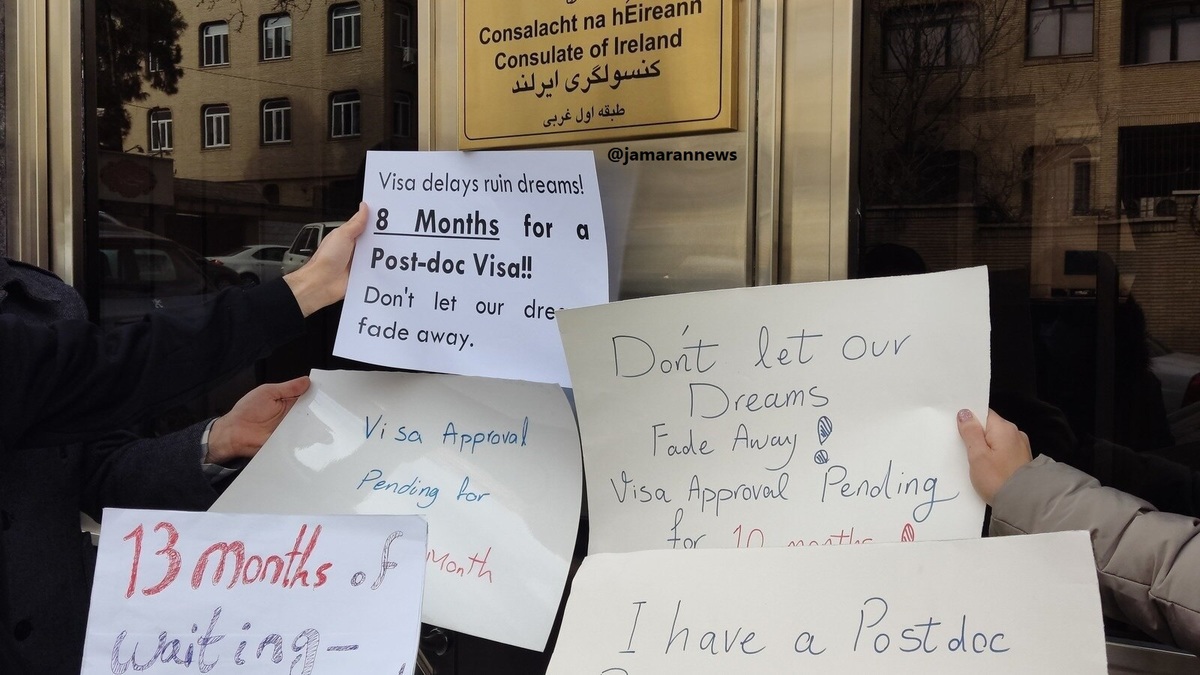 Consalacht na hÉireann
Consulate of Ireland
کنسولگری ایرلند
طبقه اول غربی
@jamarannews
Visa delays ruin dreams!
8 Months for a
Post-doc Visa!!
Don't let our dre
fade away.
Don't let our
Dreams
Fade Away!
Visa Approval Pending
for 10 months!
Visa Approval
Pending for
Month
13 months of
waiting-
I have a Postdoc